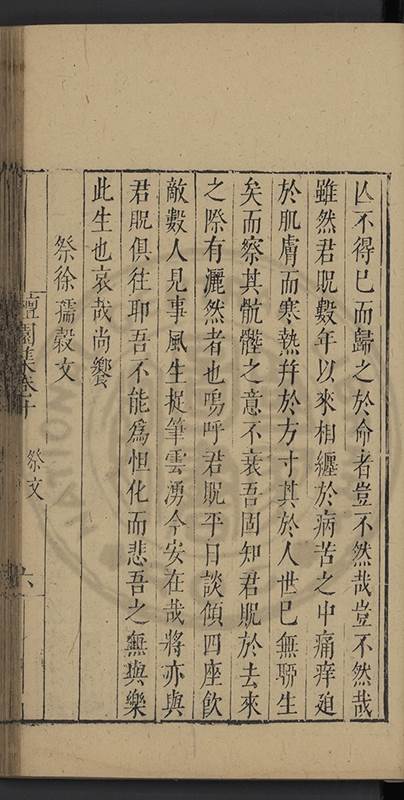 亾不得已而歸之於命者豈不然哉豈不然哉
雖然君貺數年以來相纏於病苦之中痛痒廹
於肌膚而寒熱幷於方寸其於人世已無聊生
矣而察其骯髒之意不衰吾固知君貺於去來
之際有灑然者也嗚呼君貺平日談傾四座飲
敵數人見事風生捉筆雲湧今安在哉將亦與
君貺俱徃耶吾不能爲怛化而悲吾之無與樂
此生也哀哉尚饗
祭徐孺穀文
檀園集卷十 祭文 六